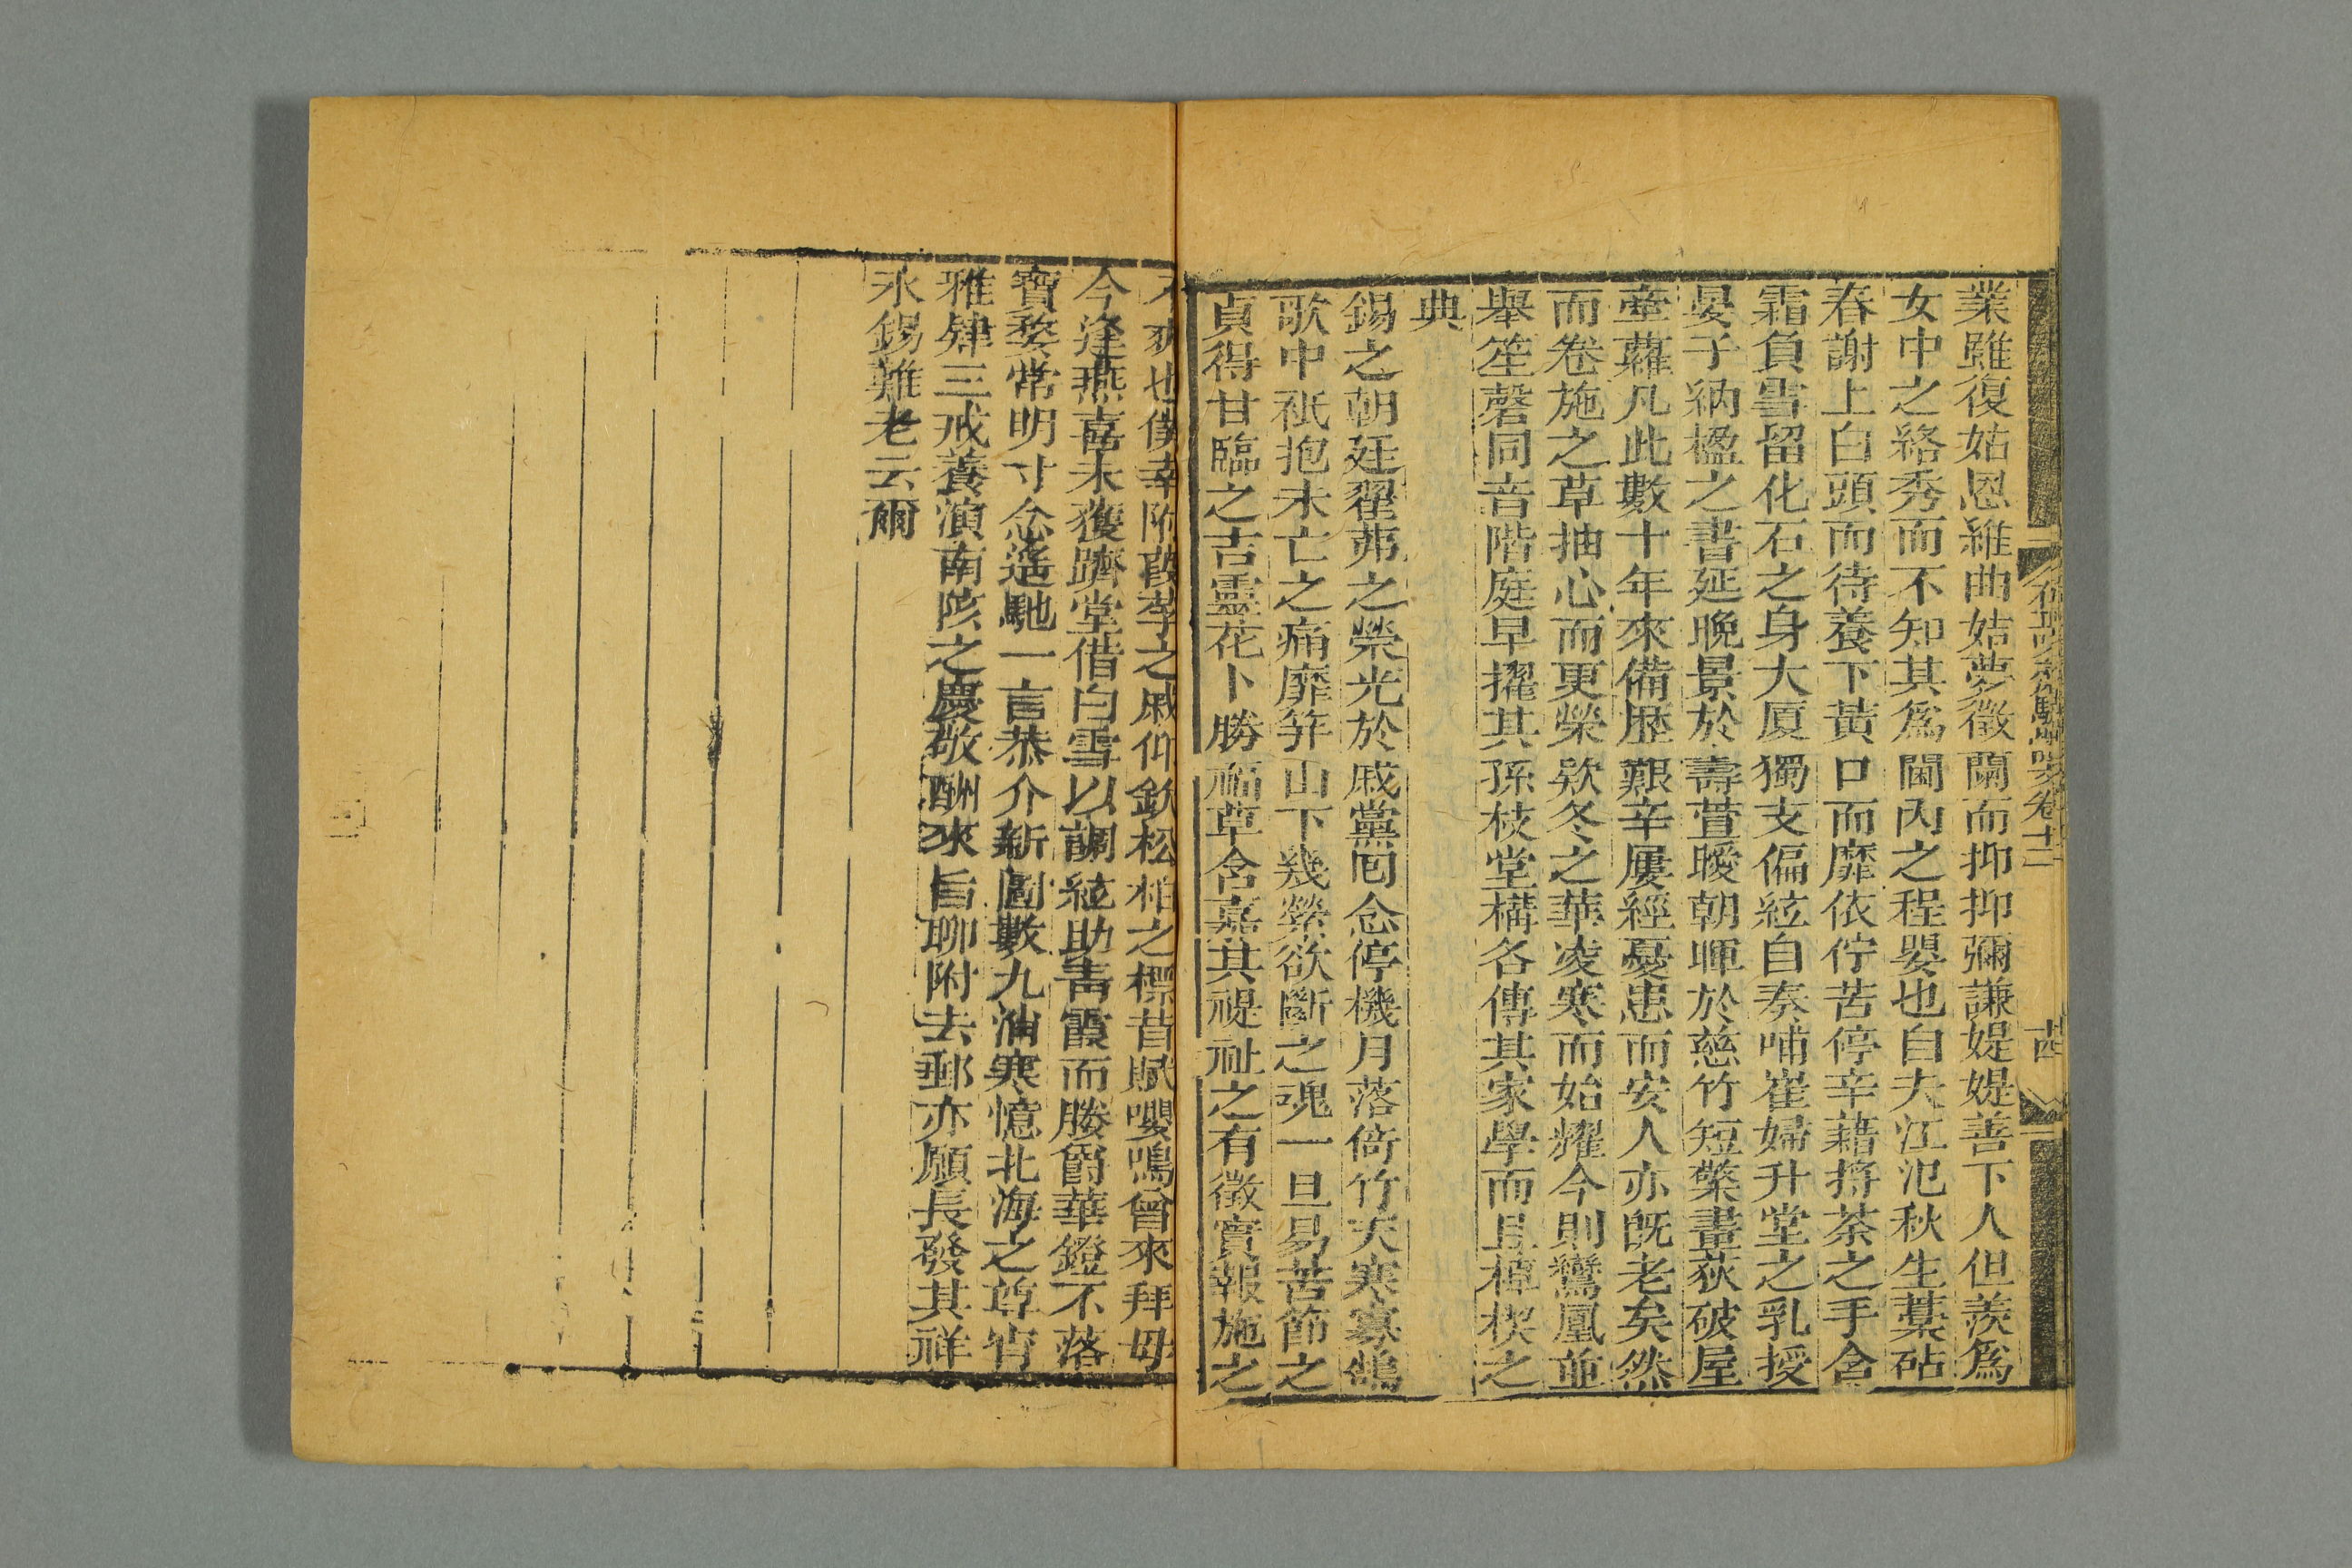 業雖復姑恩維曲姑夢徵蘭而抑抑彌謙媞媞善下人但羨爲
女中之絡秀而不知其爲閫內之程嬰也自夫江汜秋生藁砧
春謝上白頭而待養下黃口而靡依佇苦停辛藉捋荼之手含
霜負雪留化石之身大厦獨支偏絃自奏哺崔婦升堂之乳授
晏子納楹之書延晚景於壽萱曖朝暉於慈竹短檠畫荻破屋
牽蘿凡此數十年來備歷艱辛屢經憂患而安人亦旣老矣然
而卷施之草抽心而更榮欵冬之華凌寒而始耀今則鸞凰並
舉笙磬同音階庭早擢其孫枝堂構各傳其家學而且棹楔之
典
錫之朝廷翟茀之榮光於戚黨囘念停機月落倚竹天寒寡鵠
歌中祇抱未亡之痛靡笄山下幾縈欲斷之魂一旦易苦節之
貞得甘臨之吉靈花卜勝福草含嘉其禔祉之有徵實報施之
不爽也僕幸附葭莩之戚仰欽松柏之標昔賦嚶鳴曾來拜母
今逢燕喜未獲躋堂借白雪以調絃助靑霞而勝爵華鐙不落
寶婺常明寸念遙馳一言恭介新圖數九消寒憶北海之尊宵
雅肄三戒養演南陔之慶敬酬來旨聊附去郵亦願長發其祥
永錫難老云爾
卷十二
十四